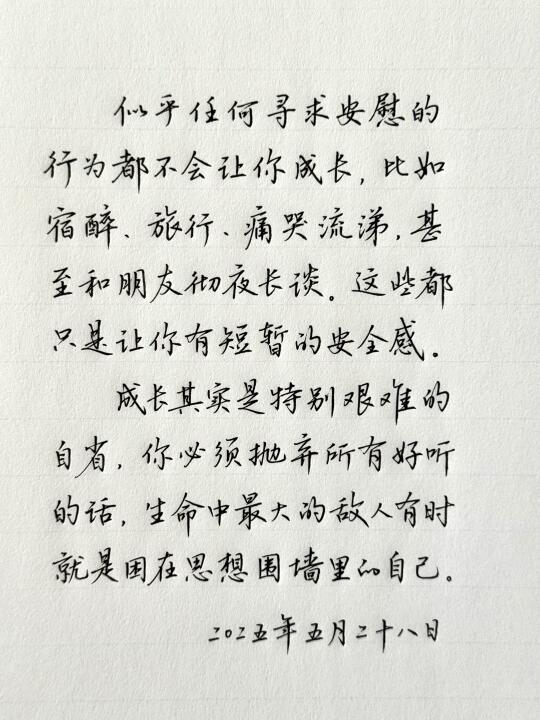 似乎任何寻求安慰的
行为都不会让你成长，比如
宿醉、旅行、痛哭流涕，甚
至和朋友彻夜长谈。这些都
只是让你有短暂的安全感。
成长其实是特别艰难的
自省，你必须抛弃所有好听
的话，生命中最大的敌人有时
就是困在思想围墙里的自己。
二〇二五年五月二十八日